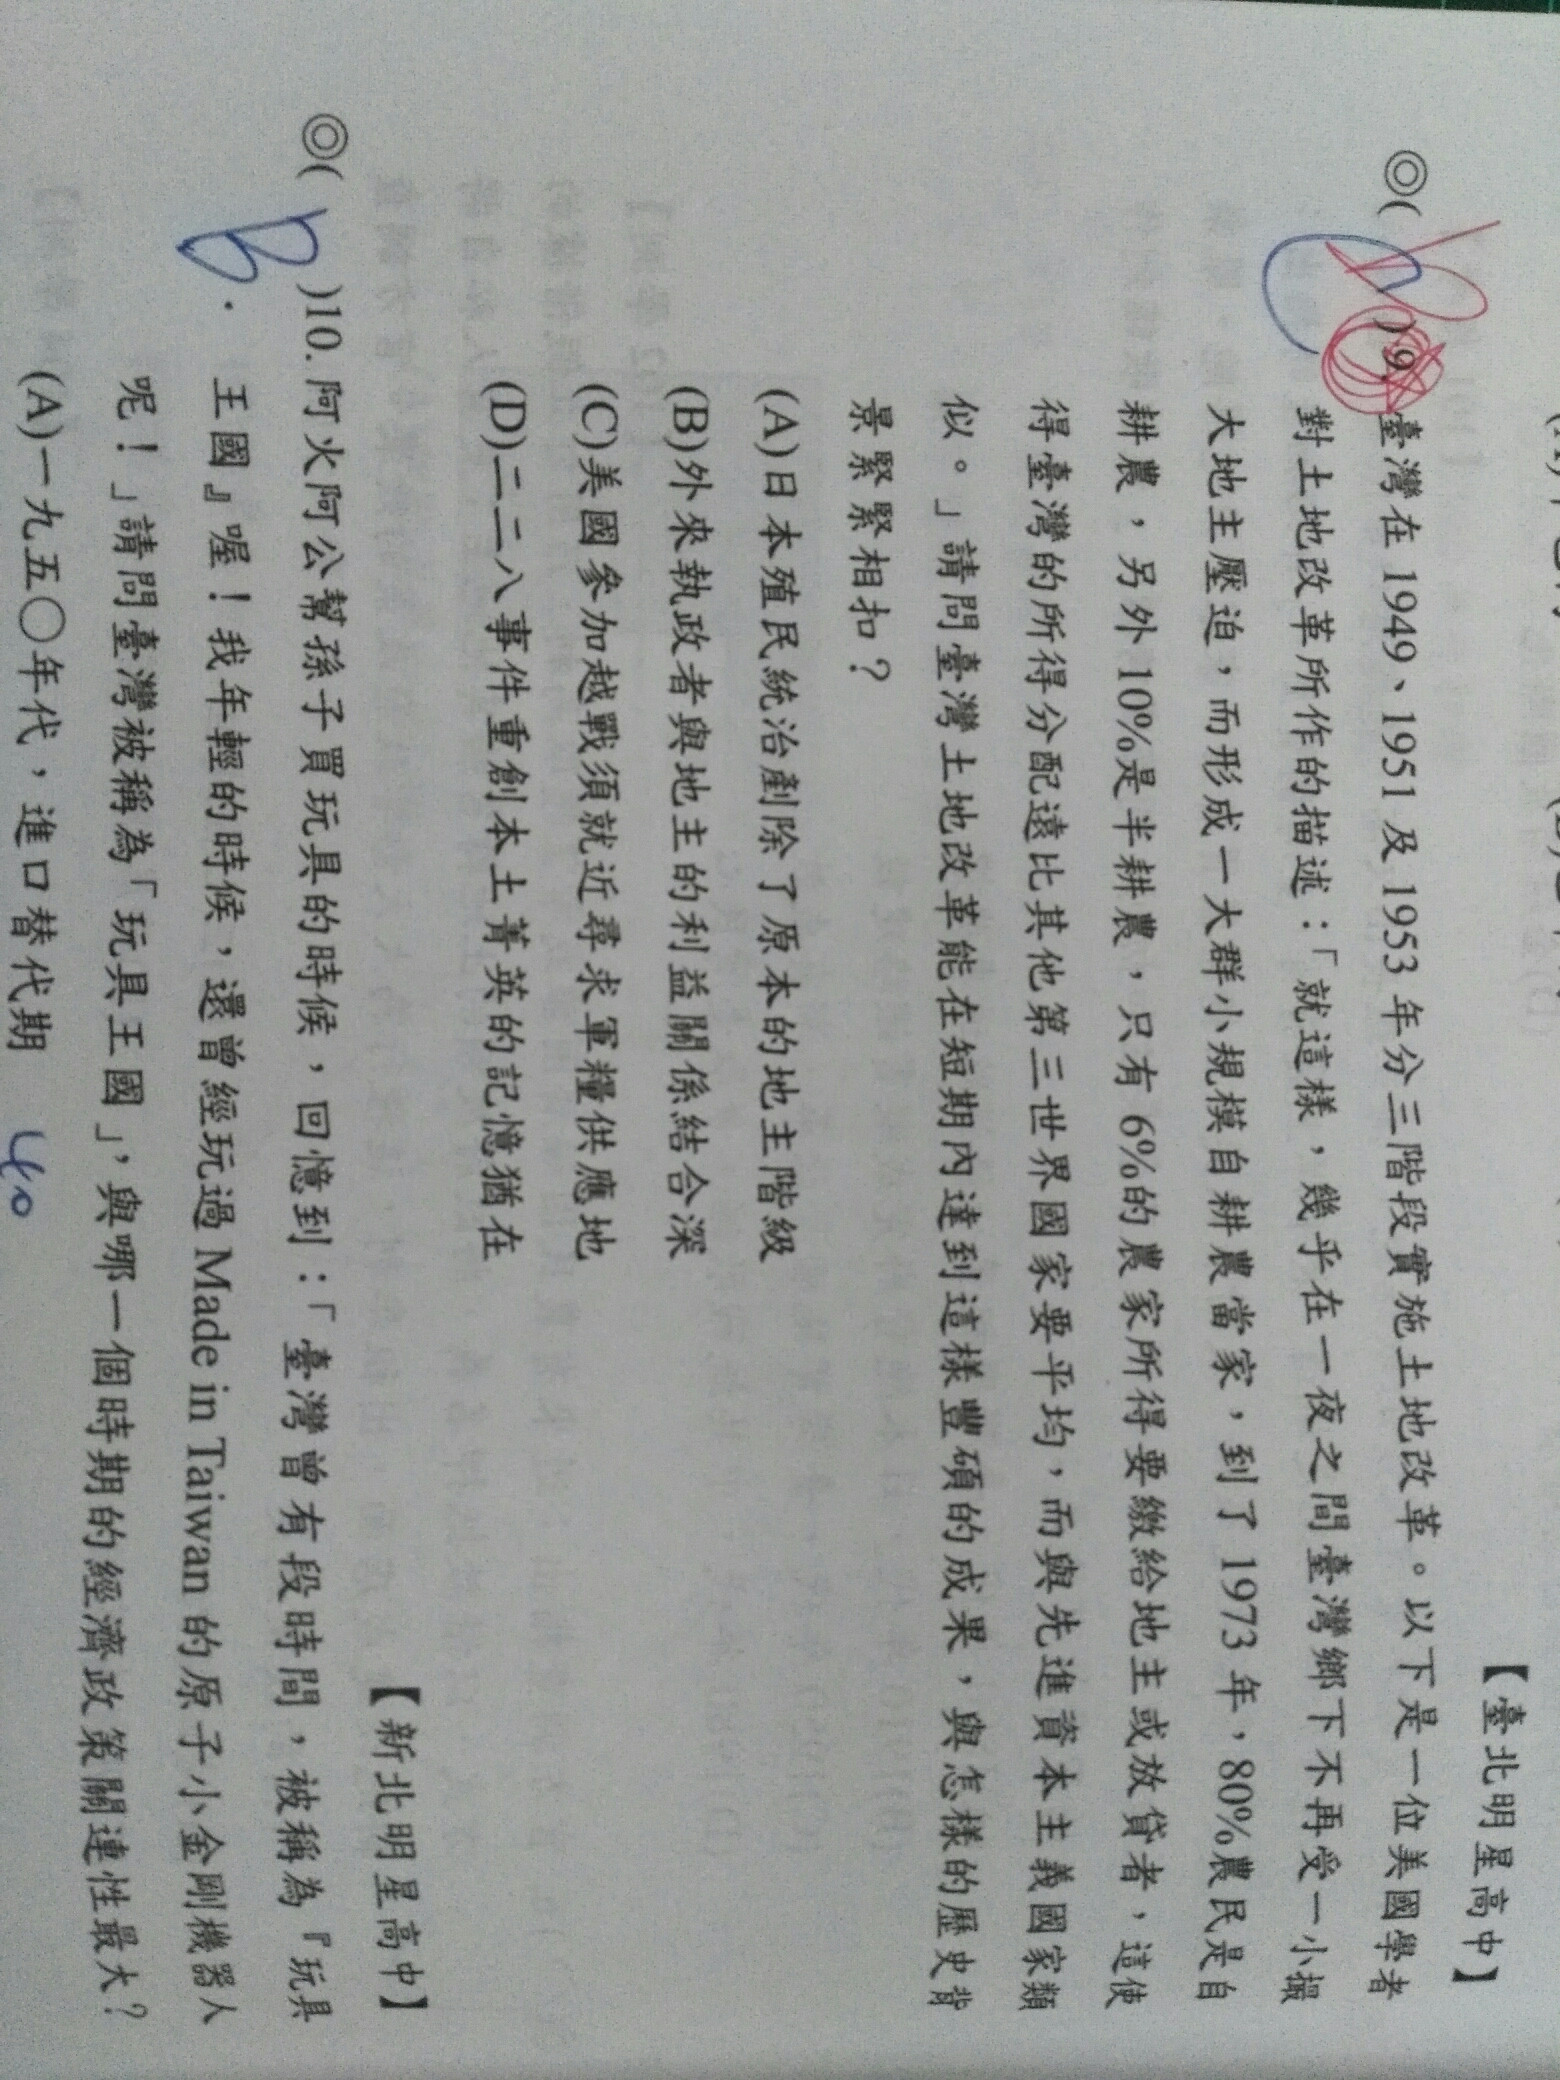 【臺北明星高中】
◎( )9. 臺灣在 1949、1951 及 1953 年分三階段實施土地改革。以下是一位美國學者
對土地改革所作的描述：「就這樣，幾乎在一夜之間臺灣鄉下不再受一小撮
大地主壓迫，而形成一大群小規模自耕農當家，到了 1973 年，80%農民是自
耕農，另外 10%是半耕農，只有 6%的農家所得要繳給地主或放貸者，這使
得臺灣的所得分配遠比其他第三世界國家要平均，而與先進資本主義國家類
似。」請問臺灣土地改革能在短期內達到這樣豐碩的成果，與怎樣的歷史背
景緊緊相扣？
(A)日本殖民統治剷除了原本的地主階級
(B)外來執政者與地主的利益關係結合深
(C)美國參加越戰須就近尋求軍糧供應地
(D)二二八事件重創本土菁英的記憶猶在
【新北明星高中】
◎( B )10. 阿火阿公幫孫子買玩具的時候，回憶到：「臺灣曾有段時間，被稱為『玩具
王國』喔！我年輕的時候，還曾經玩過 Made in Taiwan 的原子小金剛機器人
呢！」請問臺灣被稱為「玩具王國」，與哪一個時期的經濟政策關連性最大？
(A)一九五○年代，進口替代期